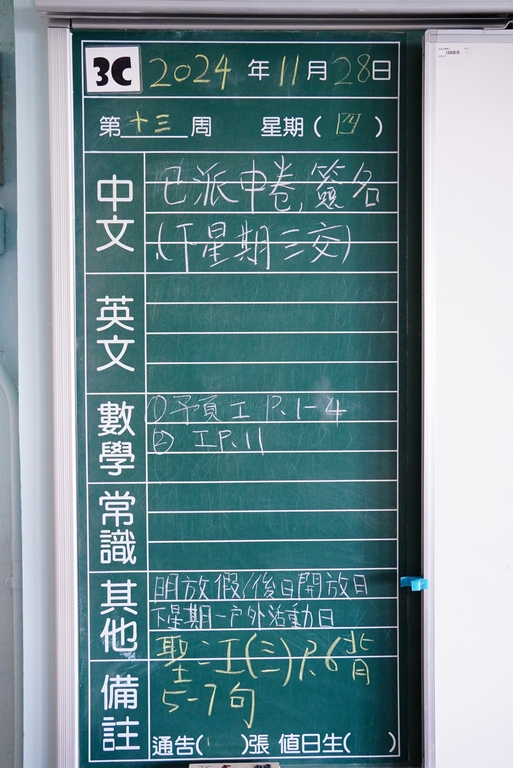 3C 2024年11月28日
第十三周 星期(四)
中文 已派中卷,簽名
(下星期三交)
英文
數學 ①預工 P.1-4
② 工P.11
常識
其他 明放假/後日開放日
下星期一戶外活動日
聖二工(三)P.6背
備註 5-7句
通告( )張 值日生( )